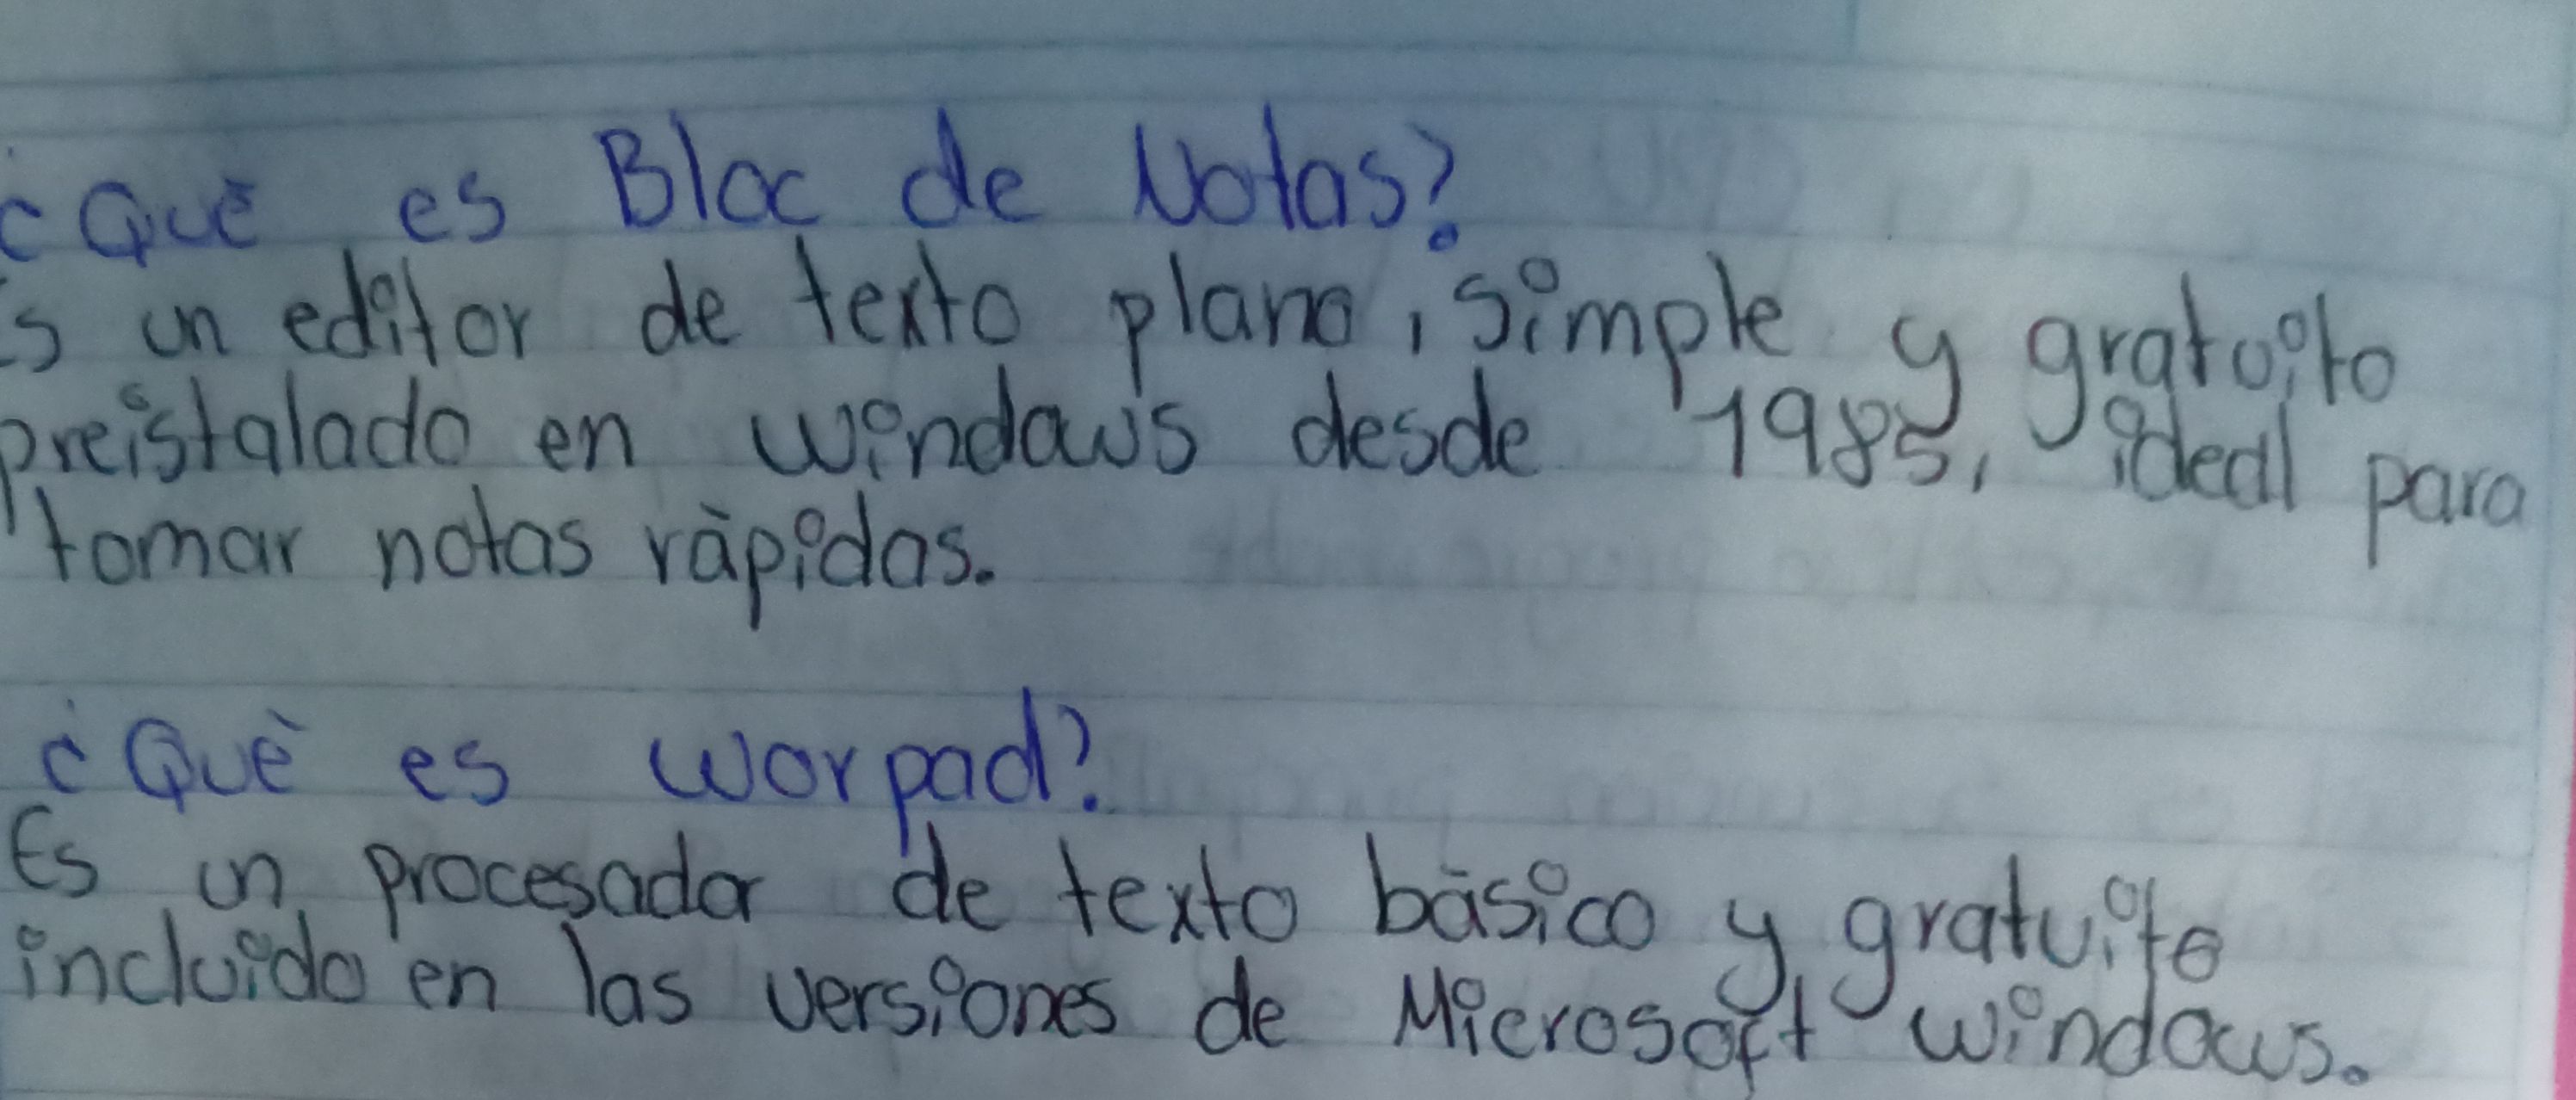 ¿Què es Bloc de Notas?
Es un editor de texto plano, simple y gratuito
preistalado en windows desde 1985, ideal para
tomar notas ràpidas.
¿Què es worpad?
Es un procesador de texto bàsico y gratuito
incluido en las versiones de Microsoft windows.